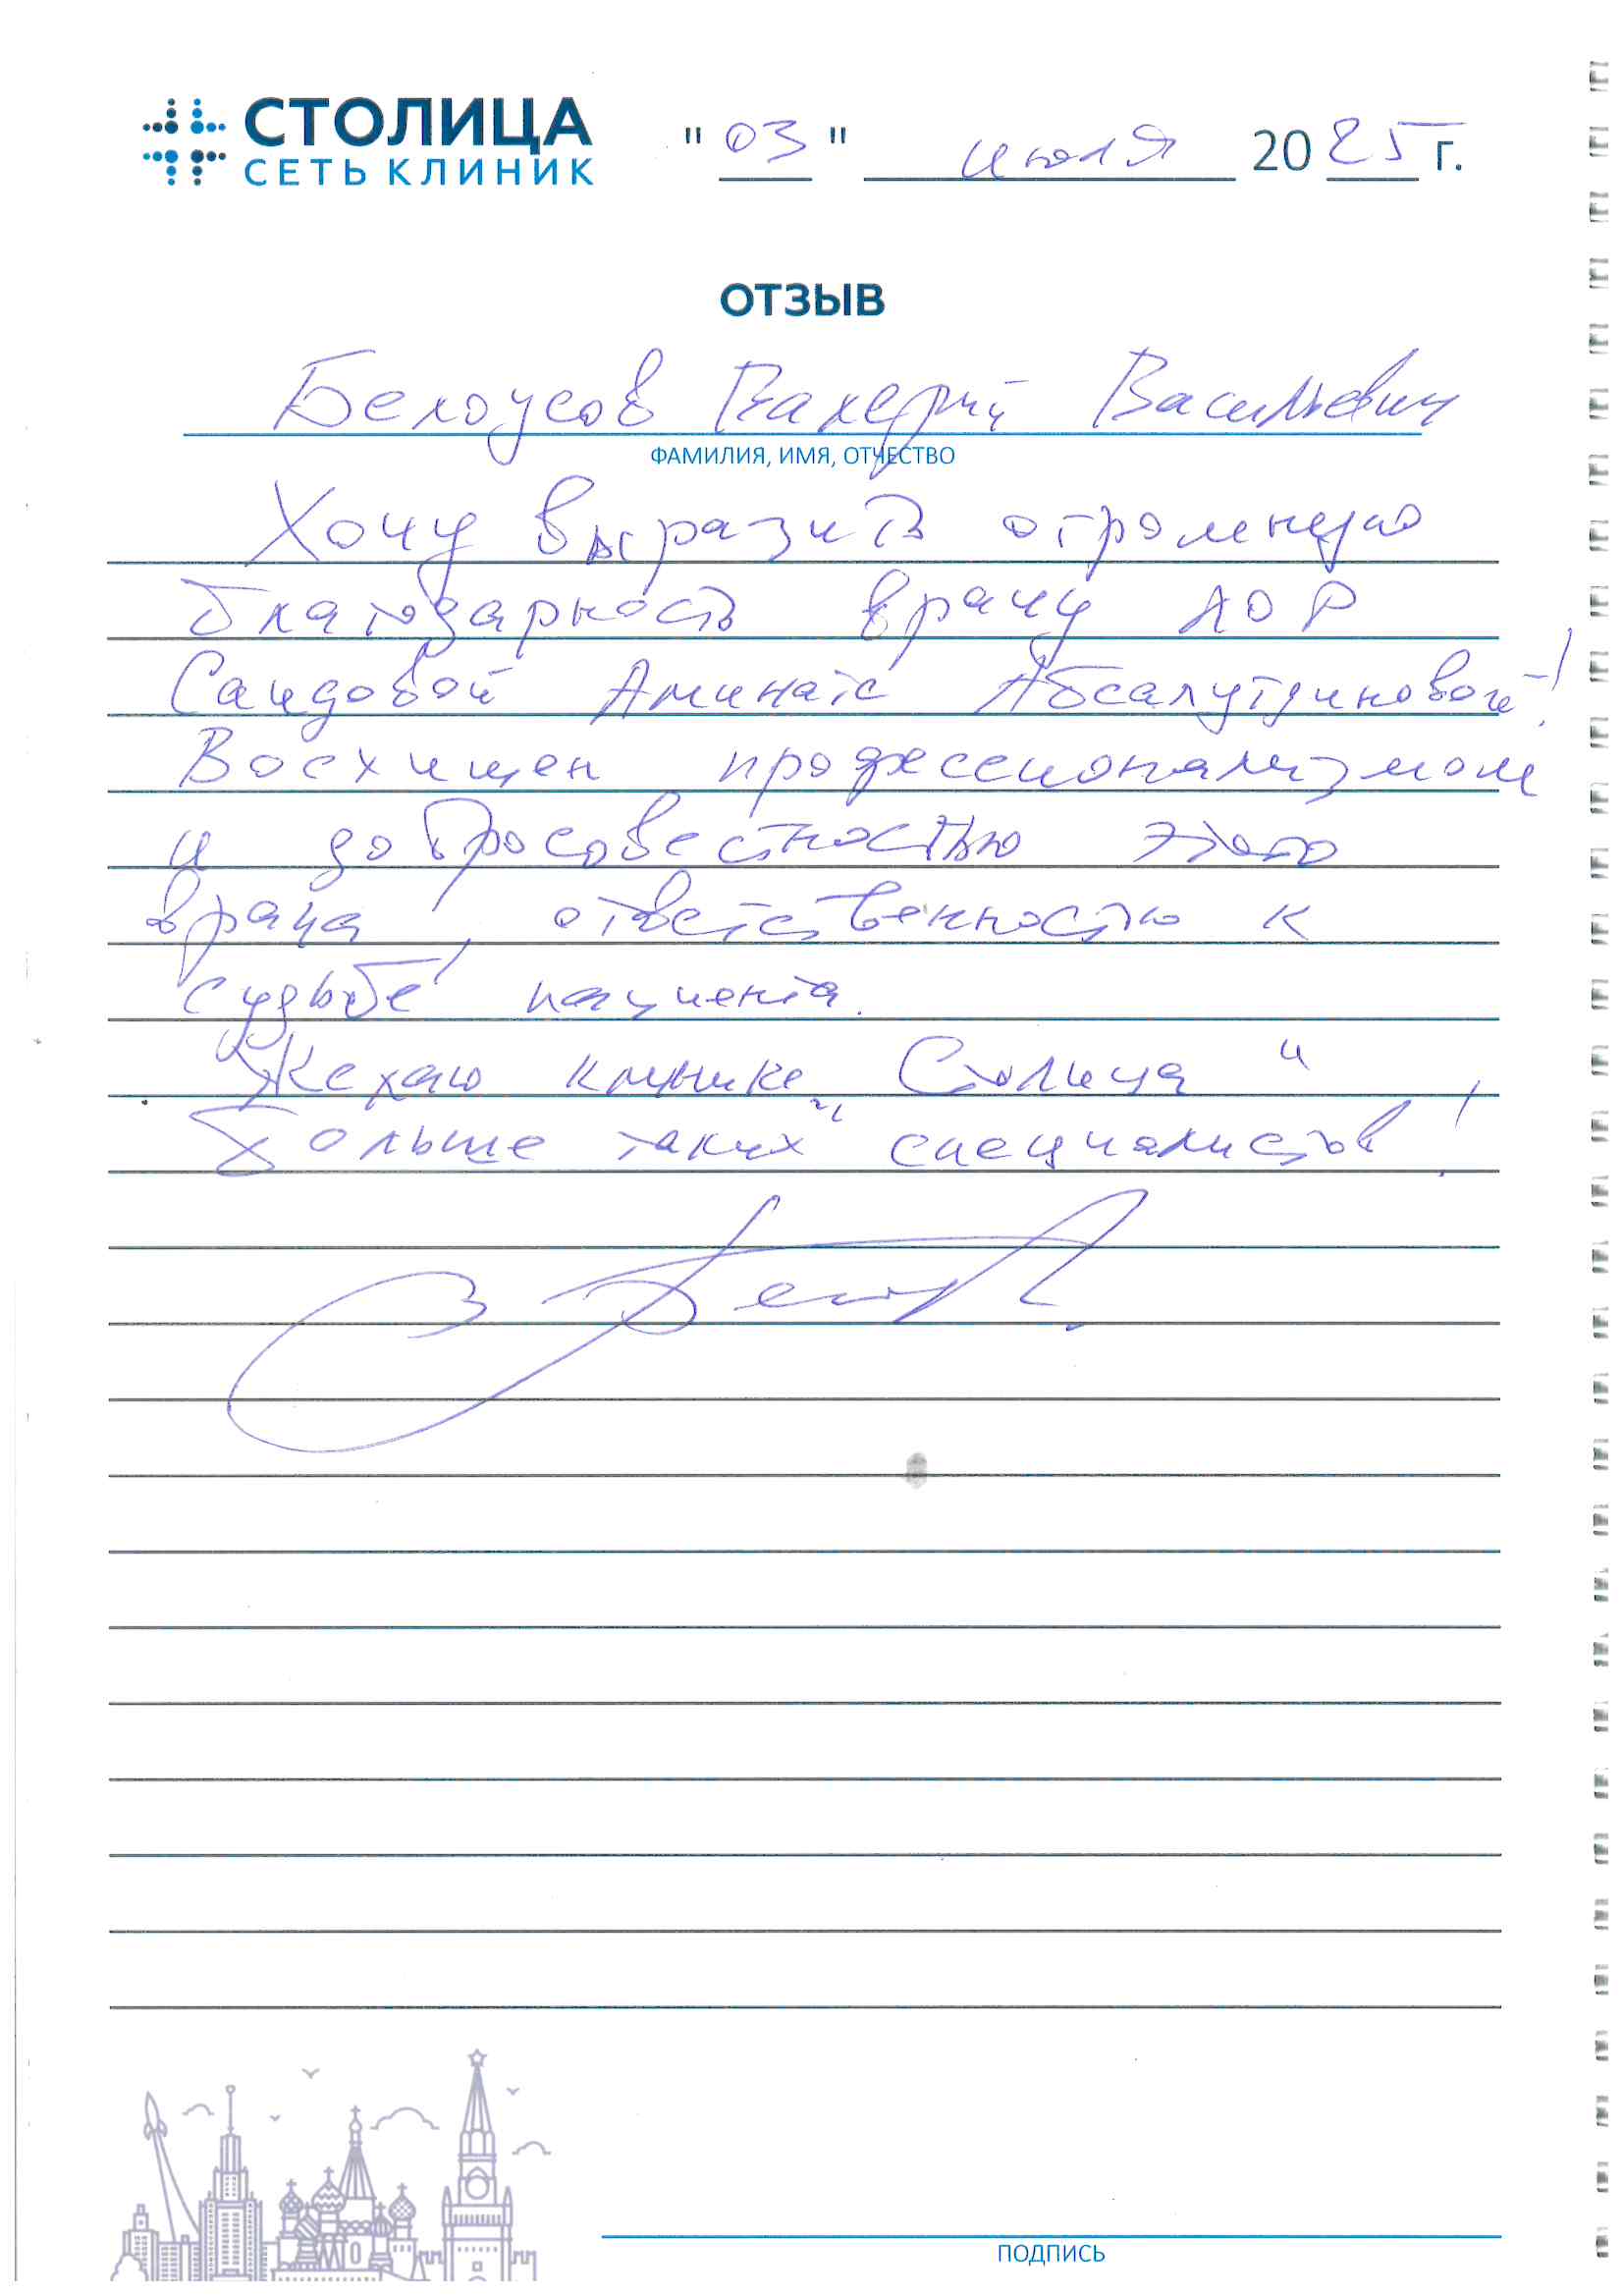 СТОЛИЦА
СЕТЬ КЛИНИК
"03" июля 2025 г.
ОТЗЫВ
Белоусов Валерий Васильевич
ФАМИЛИЯ, ИМЯ, ОТЧЕСТВО
Хочу выразить огромную
благодарность врачу ЛОР
Саидовой Аминат Абсалутдиновой!
Восхищен профессионализмом
и добросовестностью этого
врача, ответственностью к
судьбе пациента.
Желаю клинике „Столица“
больше таких специалистов!
ПОДПИСЬ